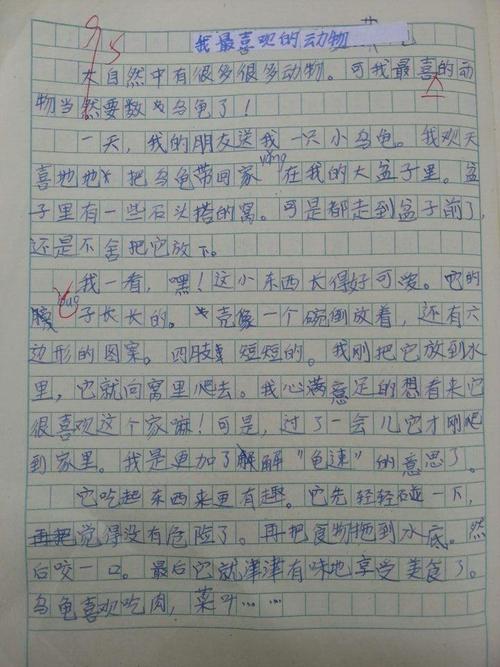 95
我最喜欢的动物
大自然中有很多很多动物。可我最喜的动
物当然要数乌龟了!
一天,我的朋友送我一只小乌龟。我欢天
喜地地把乌龟带回家yǎng在我的大盆子里。盆
子里有一些石头搭的窝。可是都走到盆子前了,
还是不舍把它放下。
我一看,嘿!这小东西长得好可爱。它的
脖子长长的。壳像一个碗倒放着,还有六
边形的图案。四肢短短的。我刚把它放到水
里,它就向窝里爬去。我心满意足的想看来它
很喜欢这个家嘛!可是,过了一会儿它才刚爬
到家里。我是更加了解"龟速"的意思了。
它吃起东西来更有趣。它先轻轻碰一下,
觉得没有危险了。再把食物拖到水底。然
后咬一口。最后它就津津有味地享受美食了。
乌龟喜欢吃肉,菜叶……